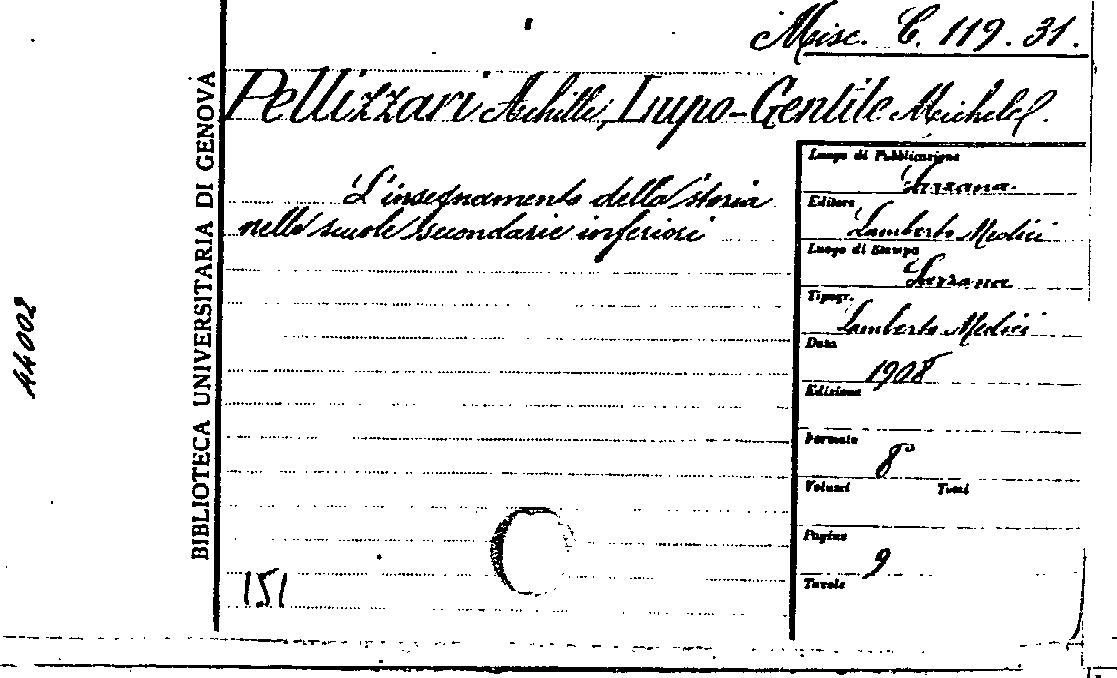 Misc. C. 119. 31.
Pellizzari Achille, Lupo-Gentile Michele.
L'insegnamento della storia
nelle scuole secondarie inferiori
Luogo di Pubblicazione
Sarzana
Editore
Lamberto Medici
Luogo di Stampa
Sarzana
Tipogr.
Lamberto Medici
Data
1908
Edizione
Formato
8°
Volumi Tomi
Pagine
9
Tavole
151
BIBLIOTECA UNIVERSITARIA DI GENOVA
44002